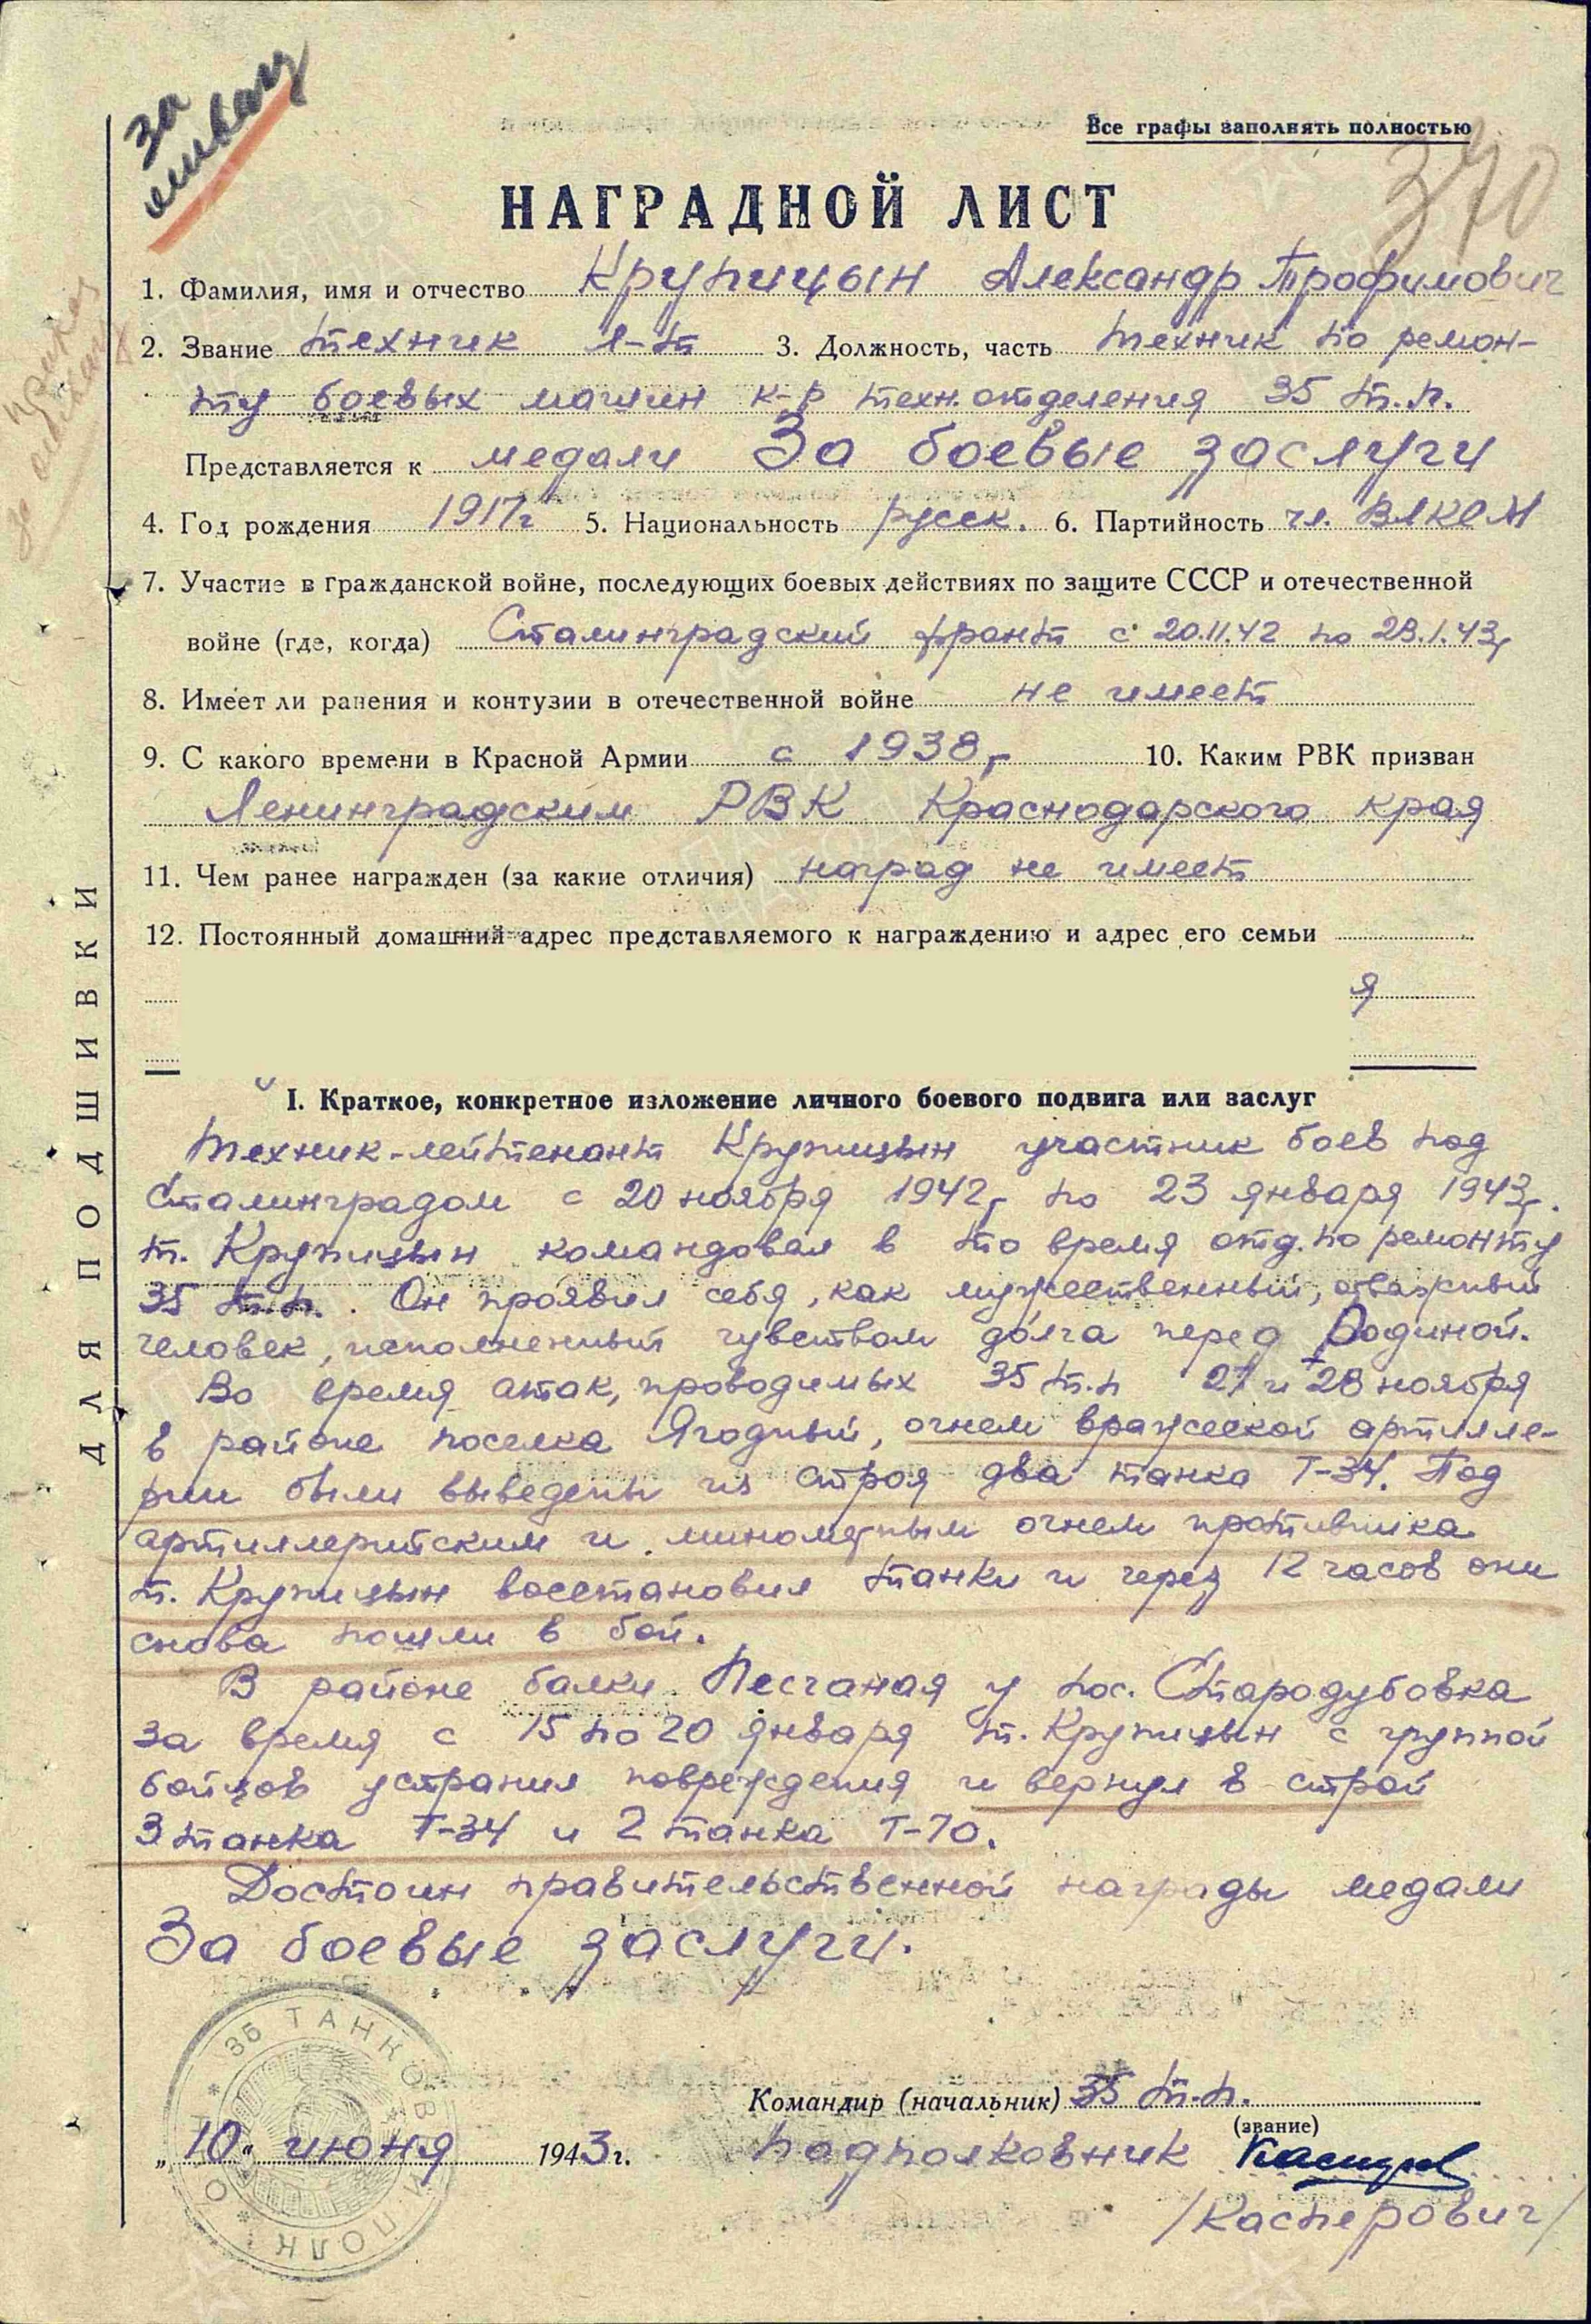 за
отвагу
Все графы заполнять полностью
370
НАГРАДНОЙ ЛИСТ
1. Фамилия, имя и отчество Крупицын Александр Трофимович
2. Звание техник л-т 3. Должность, часть техник по ремон-
ту боевых машин к-р техн. отделения 35 т.п.
Представляется к медали За боевые заслуги
4. Год рождения 1917г 5. Национальность русск. 6. Партийность чл. ВЛКСМ
7. Участие в гражданской войне, последующих боевых действиях по защите СССР и отечественной
войне (где, когда) Сталинградский фронт с 20.11.42 по 23.1.43г
8. Имеет ли ранения и контузии в отечественной войне не имеет
9. С какого времени в Красной Армии с 1938г 10. Каким РВК призван
Ленинградским РВК Краснодарского края
11. Чем ранее награжден (за какие отличия) наград не имеет
12. Постоянный домашний адрес представляемого к награждению и адрес его семьи
я
I. Краткое, конкретное изложение личного боевого подвига или заслуг
Техник-лейтенант Крупицын участник боев под
Сталинградом с 20 ноября 1942г по 23 января 1943г.
т. Крупицын командовал в то время отд. по ремонту
35 т.п. Он проявил себя, как мужественный, отважный
человек, исполненный чувством долга перед Родиной.
Во время атак, проводимых 35 т.п 27 и 28 ноября
в районе поселка Ягодный, огнем вражеской артилле-
рии были выведены из строя два танка Т-34. Под
артиллерийским и минометным огнем противника
т. Крупицын восстановил танки и через 12 часов они
снова пошли в бой.
В районе балки Песчаная у пос. Стародубовка
за время с 15 по 20 января т. Крупицын с группой
бойцов устранил повреждения и вернул в строй
3 танка Т-34 и 2 танка Т-70.
Достоин правительственной награды медали
За боевые заслуги.
35 ТАНКОВЫЙ ПОЛК
Командир (начальник) 35 т.п.
(звание)
„10" июня 1943г. подполковник
/Касперович/
ДЛЯ ПОДШИВКИ